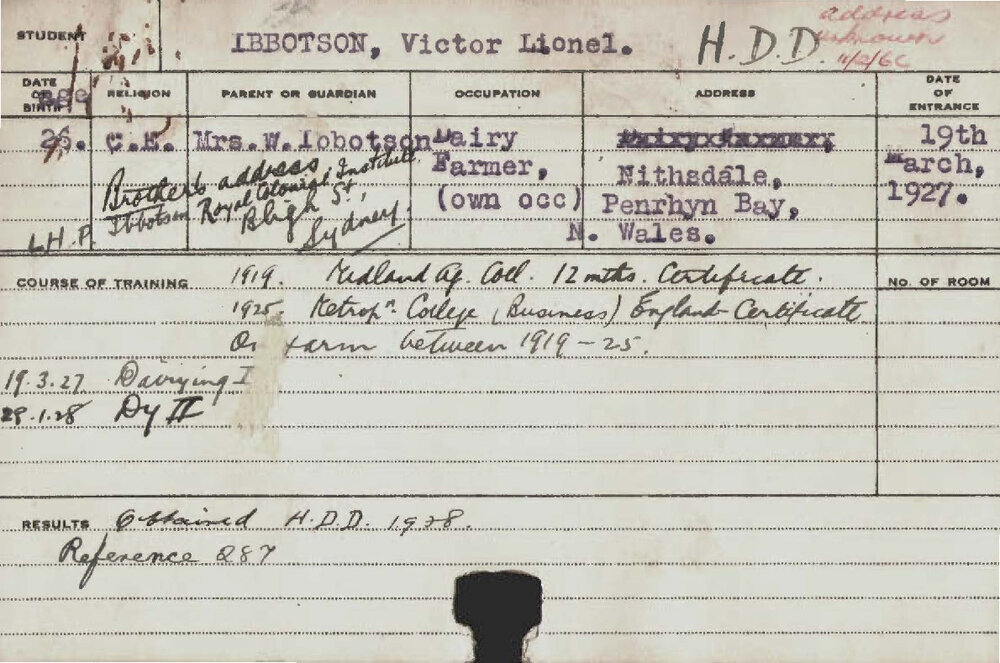 STUDENT IBBOTSON, Victor Lionel. H.D.D. address unknown
DATE OF BIRTH age RELIGION PARENT OR GUARDIAN OCCUPATION ADDRESS DATE OF ENTRANCE
26. C.E. Mrs.W.Iobotson Dairy 19th
Farmer, Nithsdale, March,
(own occ) Penrhyn Bay, 1927.
N. Wales.
Brother's address
Ibbotson Royal Colonial Institute
Bligh St,
Sydney.
L.H.P.
COURSE OF TRAINING 1919. Midland Ag. Coll. 12 mths. Certificate. NO. OF ROOM
1925. Metropn. College (Business) England Certificate
On farm between 1919-25.
19.3.27 Dairying I
29.1.28 Dy II
RESULTS Obtained H.D.D. 1928.
Reference 287